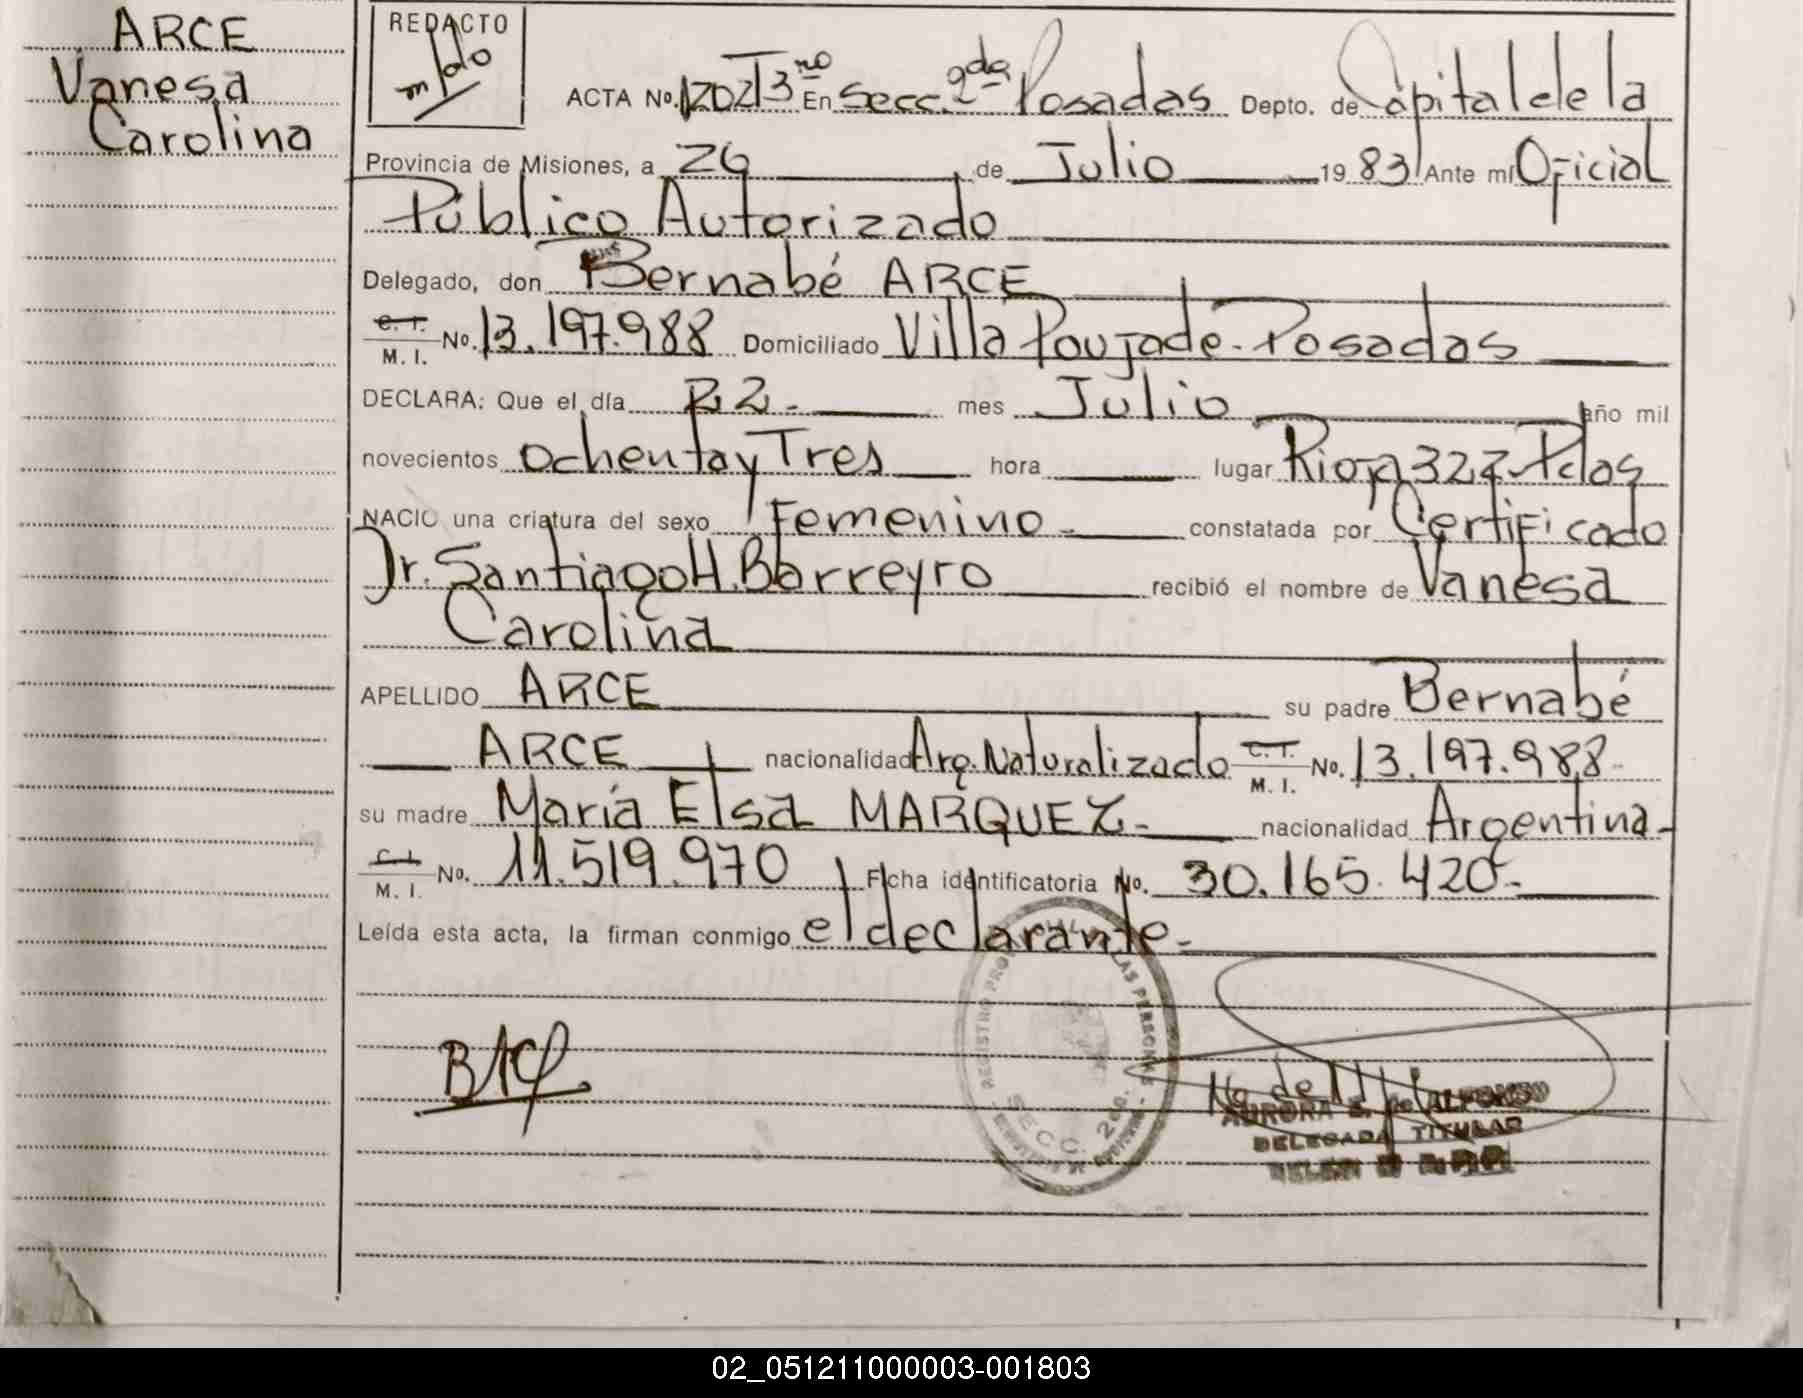 ARCE
Vanesa
Carolina
REDACTO
ACTA No. 1202 T 3ro En Secc. 2da Posadas Depto. de Capital de la
Provincia de Misiones, a 26 de Julio 1983 Ante mí Oficial
Público Autorizado
Delegado, don Bernabé ARCE
C. I. M. I. No. 13.197.988 Domiciliado Villa Poujade - Posadas
DECLARA: Que el día 22 - mes Julio año mil
novecientos ochenta y Tres hora lugar Rioja 322 - Pdas
NACIO una criatura del sexo Femenino - constatada por Certificado
Dr. Santiago H. Barreyro recibió el nombre de Vanesa
Carolina
APELLIDO ARCE su padre Bernabé
ARCE nacionalidad Arg. Naturalizado C. I. M. I. No. 13.197.988 -
su madre María Elsa MARQUEZ - nacionalidad Argentina -
C. I. M. I. No. 11.519.970 Ficha identificatoria No. 30.165.420 -
Leída esta acta, la firman conmigo el declarante -
REGISTRO LAS PERSONAS
SECC. 2da.
AURORA S. de ALFONSO
DELEGADA TITULAR
02_051211000003-001803